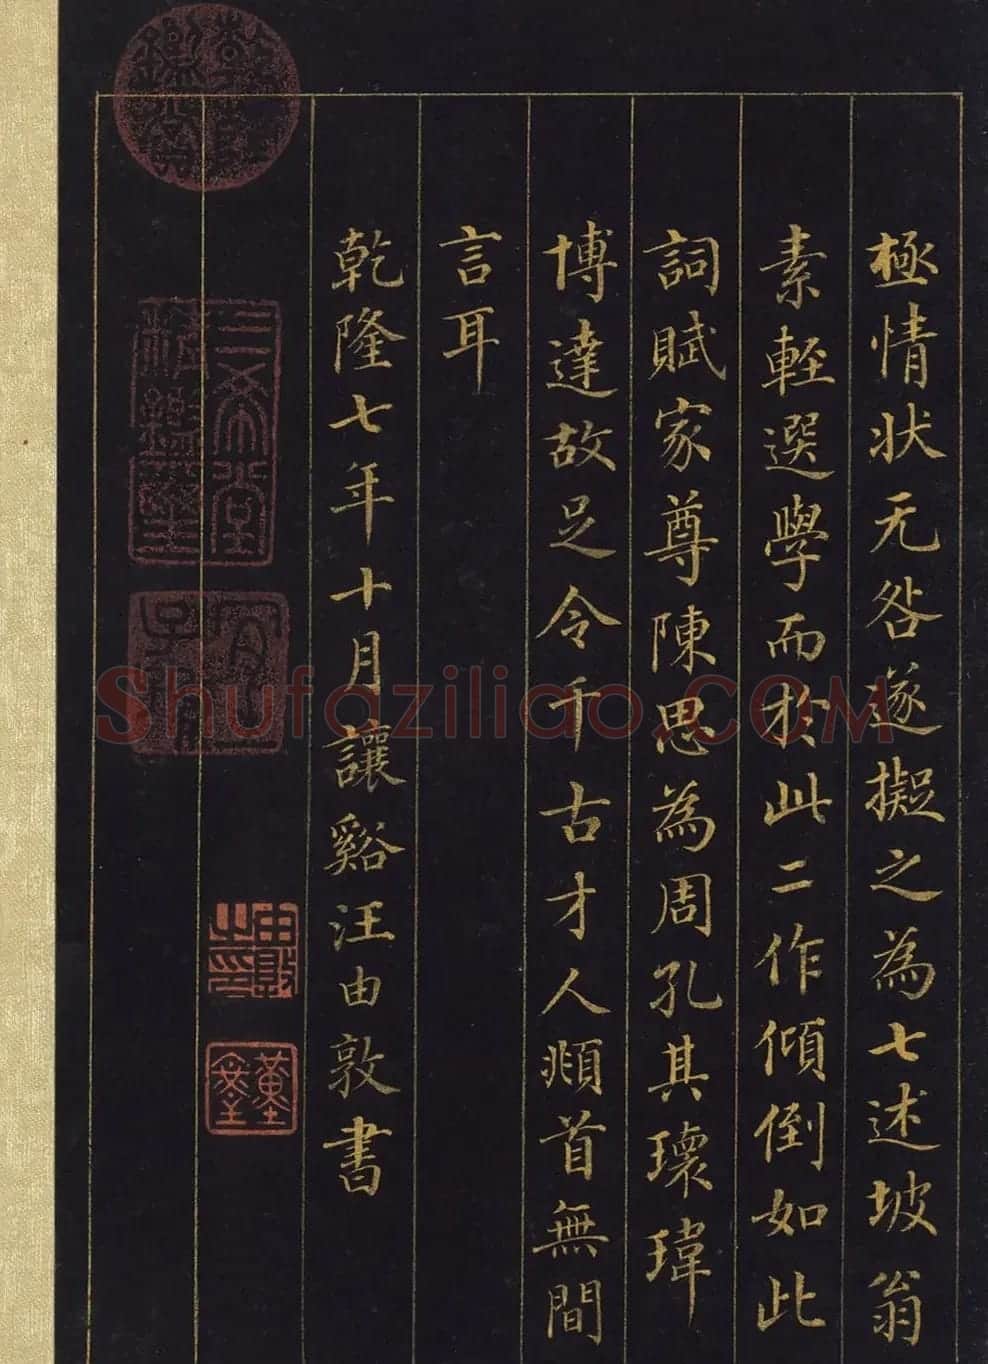 極情状无咎遂擬之為七述坡翁
素輕選學而於此二作傾倒如此
詞賦家尊陳思為周孔其瓌瑋
博達故足令千古才人頫首無間
言耳
乾隆七年十月讓谿汪由敦書
三希堂精鑑璽
宜子孫
由敦之印
Shufaziliao.COM